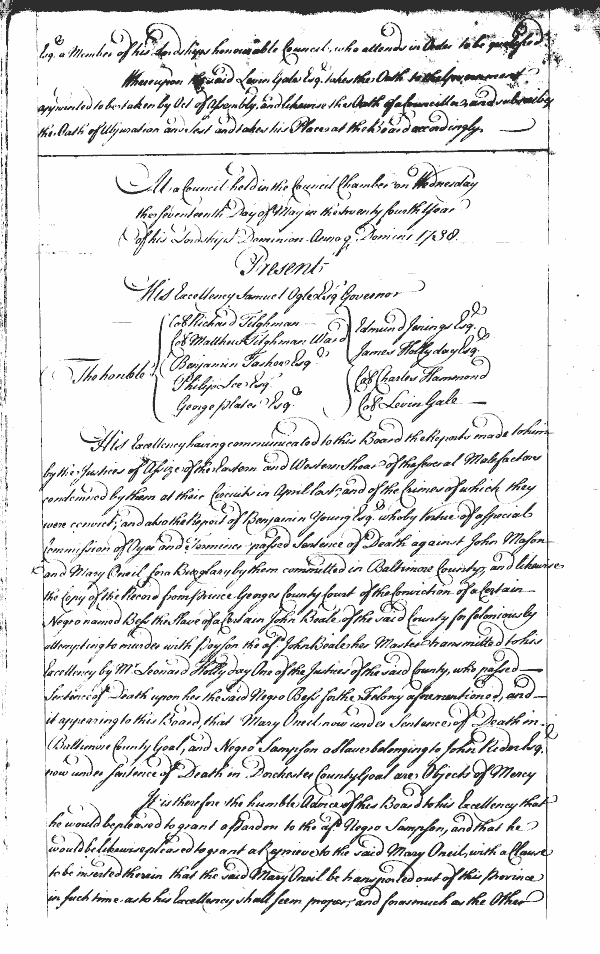 Esqr. a Member of his Lordships honourable Council, who attends in Order to be qualified
Whereupon the said Levin Gale Esqr. takes the Oath to the Government
appointed to be taken by Act of Assembly, and likewise the Oath of a Councillor, and subscribes
the Oath of Abjuration and Test and takes his Place at the Board accordingly.
At a Council held in the Council Chamber on Wednesday
the Seventeenth Day of May in the twenty fourth Year
of his Lordships Dominion Annoq Domini 1738
Present
His Excellency Samuel Ogle Esqr Governor
The honble
Col Richard Tilghman
Col Matthew Tilghman Ward
Benjamin Tasker Esqr
Philip Lee Esqr
George Plater Esqr
Edmund Jenings Esqr
James Hollyday Esqr
Col Charles Hammond
Col Levin Gale
His Excellency having communicated to this Board the Reports made to him
by the Justices of Assize of the Eastern and Western Shoar of the several Malefactors
condemned by them at their Circuits in April last, and of the Crimes of which they
were convict, and also the Report of Benjamin Young Esqr. who by Vertue of a Special
Commission of Oyer and Terminer passed Sentence of Death against John Mason
and Mary Oneil for a Burglary by them committed in Baltimore County, and likewise
the Copy of the Record from Prince Georges County Court of the Conviction of a Certain
Negro named Bess the Slave of a Certain John Beale of the said County for feloniously
attempting to murder with Poyson the afd. John Beale her Master transmitted to his
Excellency by Mr Leonard Hollyday One of the Justices of the said County, who passed
Sentence of Death upon her the said Negro Bess for the Felony aforementioned, and
it appearing to this Board that Mary Oneil now under Sentence of Death in
Baltimore County Goal, and Negro Sampson a Slave belonging to John Rider Esqr.
now under Sentence of Death in Dorchester County Goal are Objects of Mercy
It is therefore the humble Advice of this Board to his Excellency that
he would be pleased to grant a Pardon to the afd. Negro Sampson, and that he
would be likewise pleased to grant a Reprieve to the said Mary Oneil, with a Clause
to be inserted therein that the said Mary Oneil be transported out of this Province
in such time as to his Excellency shall seem proper, and forasmuch as the Other